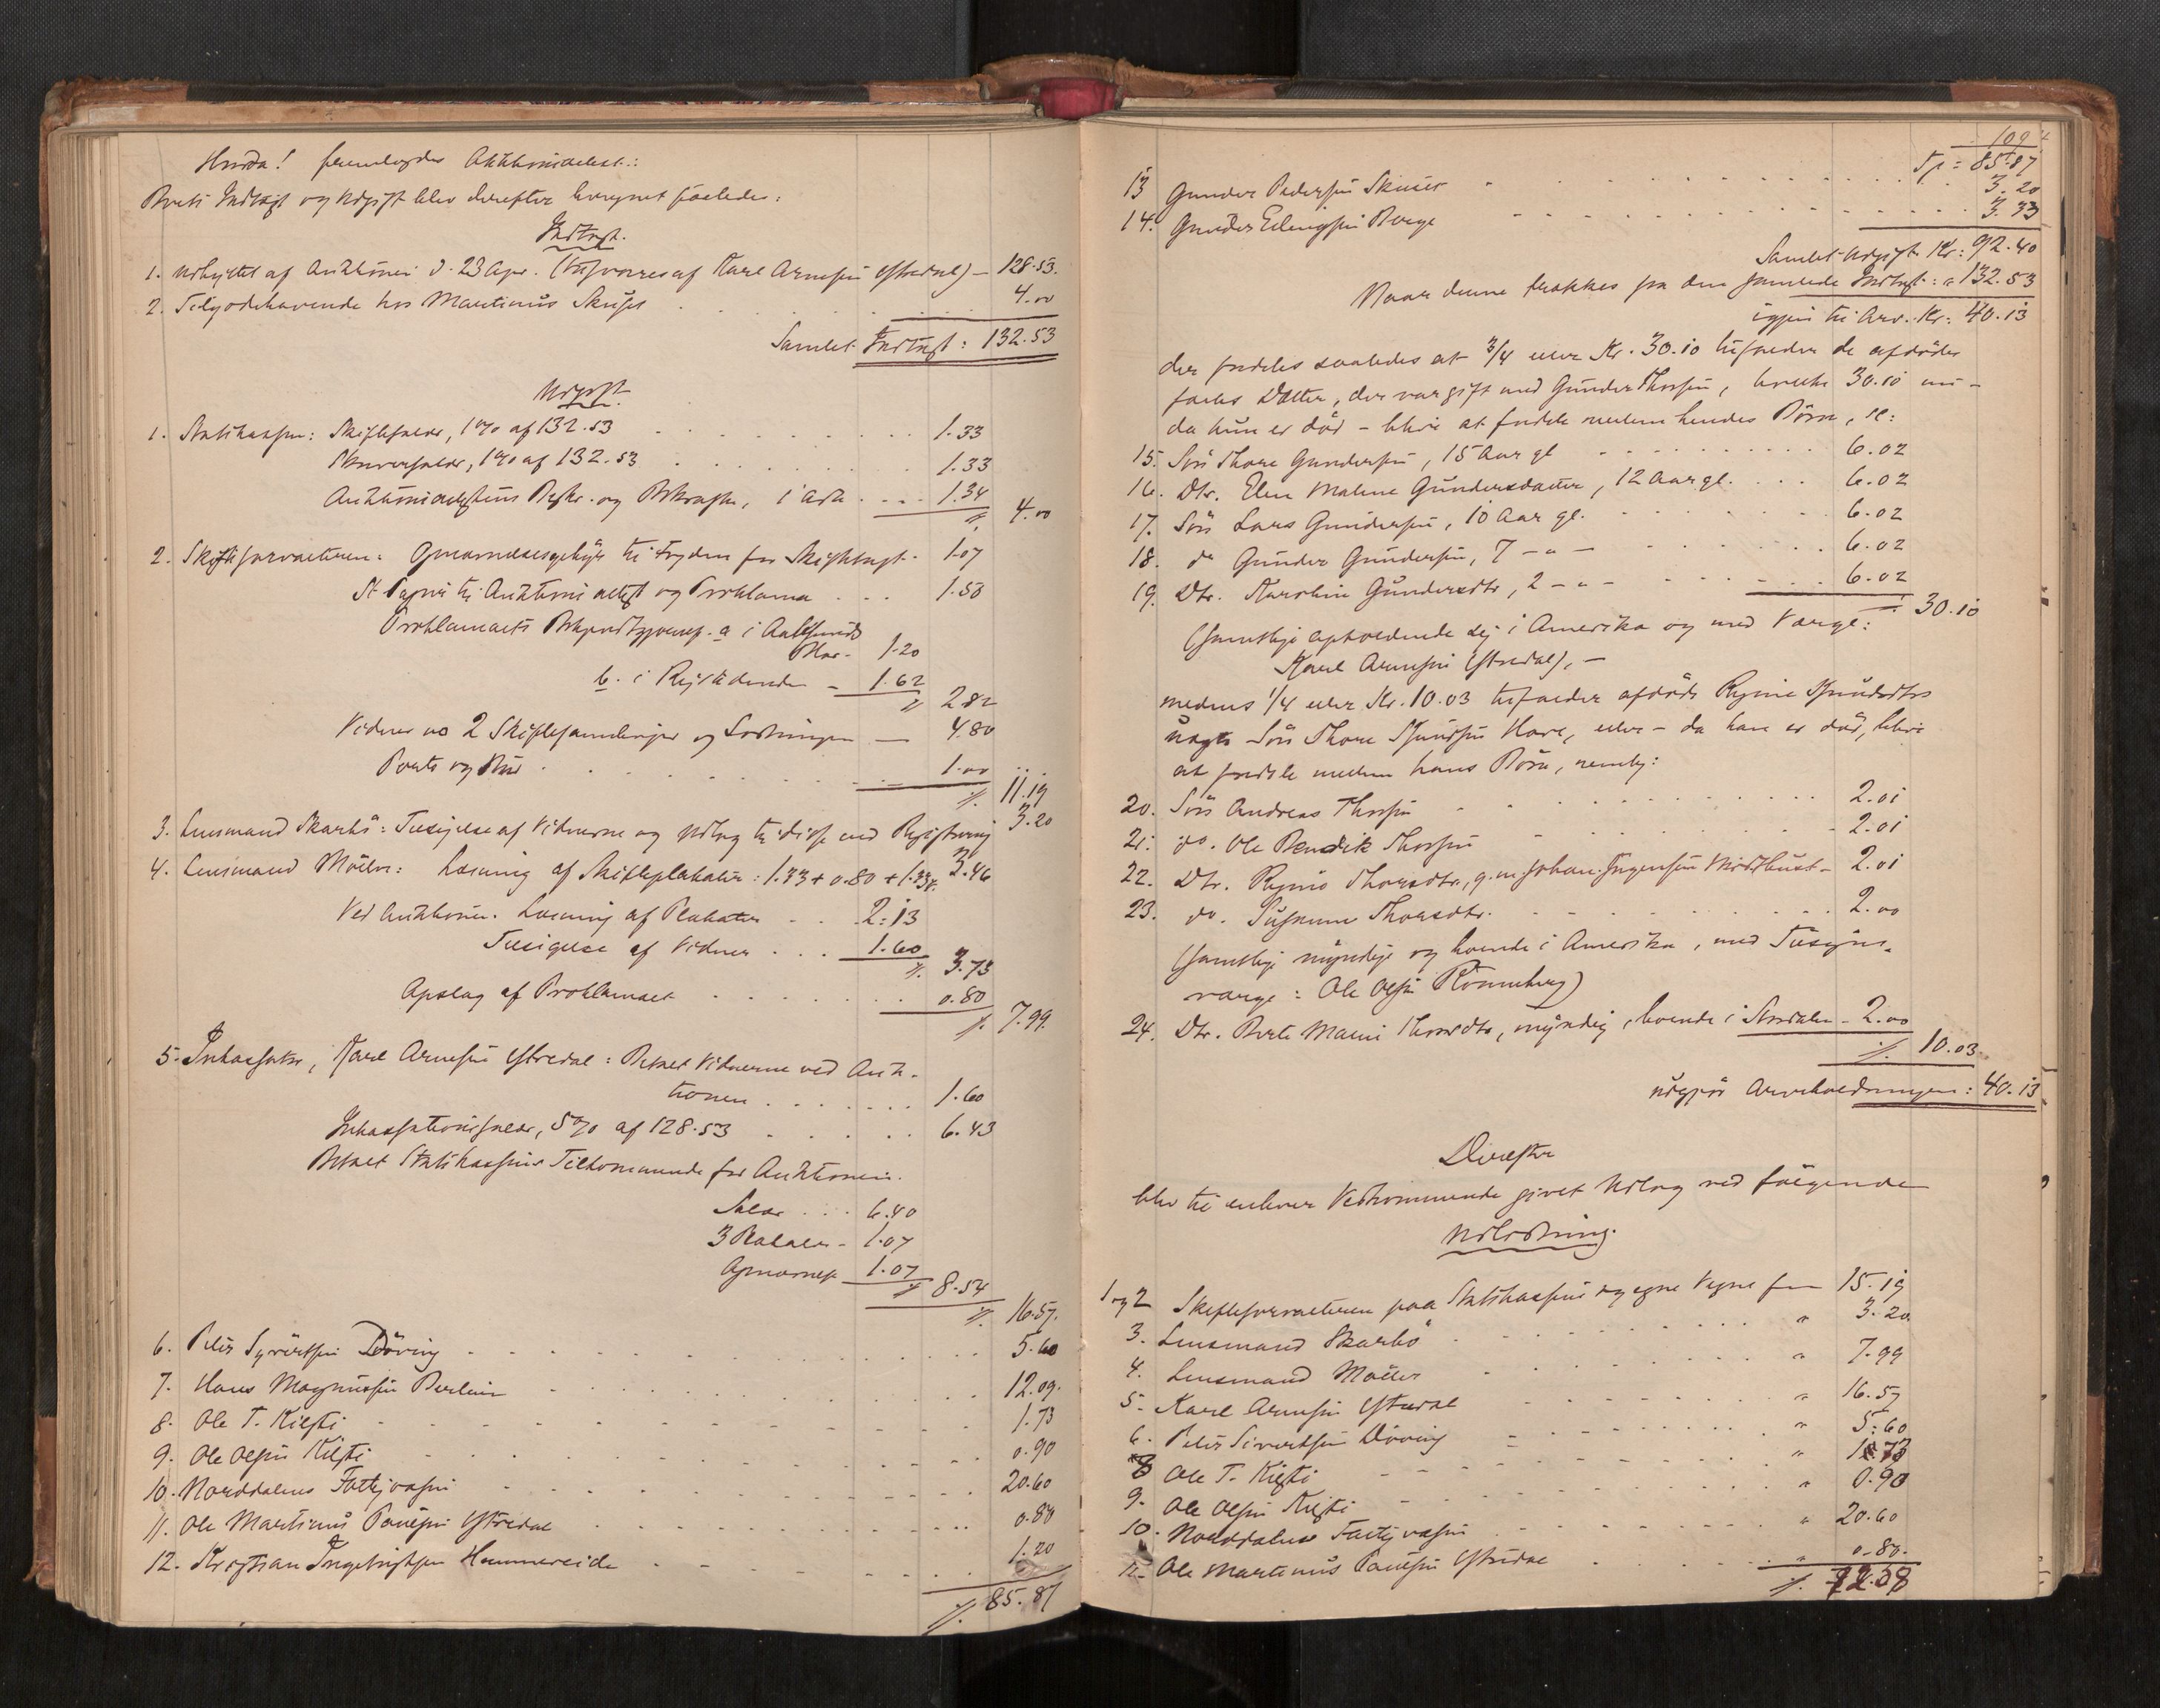 fremlagdes Auktionsacten:
Boets Indtægt og Udgift blev derefter beregnet saaledes:
Indtægt.
1. Udbyttet af Auktionen d. 23 Apr. (tilsvares af Karl Arnesen Ytredal) – 128.53.
2. Tilgodehavende hos Martinus Skuset . . . 4.00
Samlet Indtægt: 132.53
Udgift.
1. Statskassen: Skiftesalær, 1% af 132.53 . . . 1.33
Skriversalær, 1% af 132.53 . . . 1.33
Auktionsactens Beskr. og Bekræft., 1 Ark . . . 1.34
/. 4.00
2. Skifteforvalteren: Opraabelsesgebyr til Fogden for Skiftebrugt. 1.07
St. Papir til Auktionsactest og Proklama . . . 1.50
Proklamaets Bekjendtgjørelse. a i Aalesunds
Blad – 1.20
b. i Rigstidende – 1.62
/. 2.82
Vidner ved 2 Skiftesamlinger og Lodningen — 4.80
Porto og Bud . . . 1.00
/. 11.19
3. Lensmand Skarbø: Tilsigelse af Vidnerne og Udlæg til disse ved Registrering 3.20
4. Lensmand Møller: Læsning af Skifteplakater: 1.33 + 0.80 + 1.33 3.46
Ved Auktionen. Læsning af Plakater . . . 2.13
Tilsigelse af Vidner . . . 1.60
/. 3.73
Opslag af Proklamaet . . . 0.80
/. 7.99.
5. Inkassator, Karl Arnesen Ytredal: Betalt Vidnerne ved Auk-
tionen . . . 1.60
Inkassationssalær, 5% af 128.53 . . . 6.43
Betalt Statskassens Tilkommende for Auktionen.
Salær . . . 6.40
3 Plakater – 1.07
1.07
/. 8.54
/. 16.57.
6. Peter Syvertsen Døving . . . 5.60
7. Hans Magnussen Berlin . . . 12.09.
8. Ole T. Kilsti . . . 1.73
9. Ole Olsen Kilsti . . . 0.90
10. Norddalens Fattigvæsen . . . 20.60
11. Ole Martinus Paulsen Ytredal . . . 0.80
12. Kristian Ingebrigtsen Hammereide . . . 1.20
/. 85.87
109
Tp = 85.87
13 Gunder Pedersen Skuset . . . 3.20
14. Gunder Erlingsen Berge . . . 3.33
Samlet Udgift Kr: 92.40
Naar denne trækkes fra den samlede Indtægt: " 132.53
igjen til Arv. Kr: 40.13
der fordeles saaledes at 3/4 eller Kr. 30.10 tilfalder de afdødes
fælles Datter, der var gift med Gunder Thorsen, hvilke 30.10 nu –
da hun er død – blive at fordele mellem hendes Børn, sc:
15. Søn Thore Gundersen, 15 Aar gl . . . 6.02
16. Dtr. Elen Maline Gundersdatter, 12 Aar gl. . . . 6.02
17. Søn Lars Gundersen, 10 Aar gl. . . . 6.02
18. do Gunder Gundersen, 7 – " – . . . 6.02
19. Dtr. Karoline Gundersdtr, 2 – " – . . . 6.02
/. 30.10
(samtlige opholdende sig i Amerika og med Værge:
Karl Arnesen Ytredal), –
medens 1/4 eller Kr. 10.03 tilfalder afdøde Regine Knudsdtrs
uægte Søn Thore Knudsen Hove, eller – da han er død, blive
at fordele mellem hans Børn, nemlig:
20. Søn Andreas Thorsen . . . 2.01
21. do. Ole Bendik Thorsen . . . 2.01
22. Dtr. Regine Thorsdtr, g. m. Johan Jørgensen Midthust – 2.01
23. do. Susanne Thorsdtr. . . . 2.00
(samtlige myndige og boende i Amerika, med Tilsyns-
værge: Ole Olsen Rønneberg)
24. Dtr. Berte Marie Thorsdtr, myndig, boende i Norddalen – 2.00
/. 10.03
udgjør Arvebeholdningen: 40.13
Derefter
blev til enhver Vedkommende givet Udlæg ved følgende
Udlodning.
1 og 2 Skifteforvalteren paa Statskassens og egne Vegne for 15.19
3. Lensmand Skarbø . . . " 3.20
4. Lensmand Møller . . . " 7.99
5. Karl Arnesen Ytredal . . . " 16.57
6. Peter Sivertsen Døving . . . " 5.60
8 Ole T. Kilsti . . . " 1.73
9. Ole Olsen Kilsti . . . " 0.90
10. Norddalens Fattigvæsen . . . " 20.60
11. Ole Martinus Paulsen Ytredal . . . " 0.80.
/. 72.58